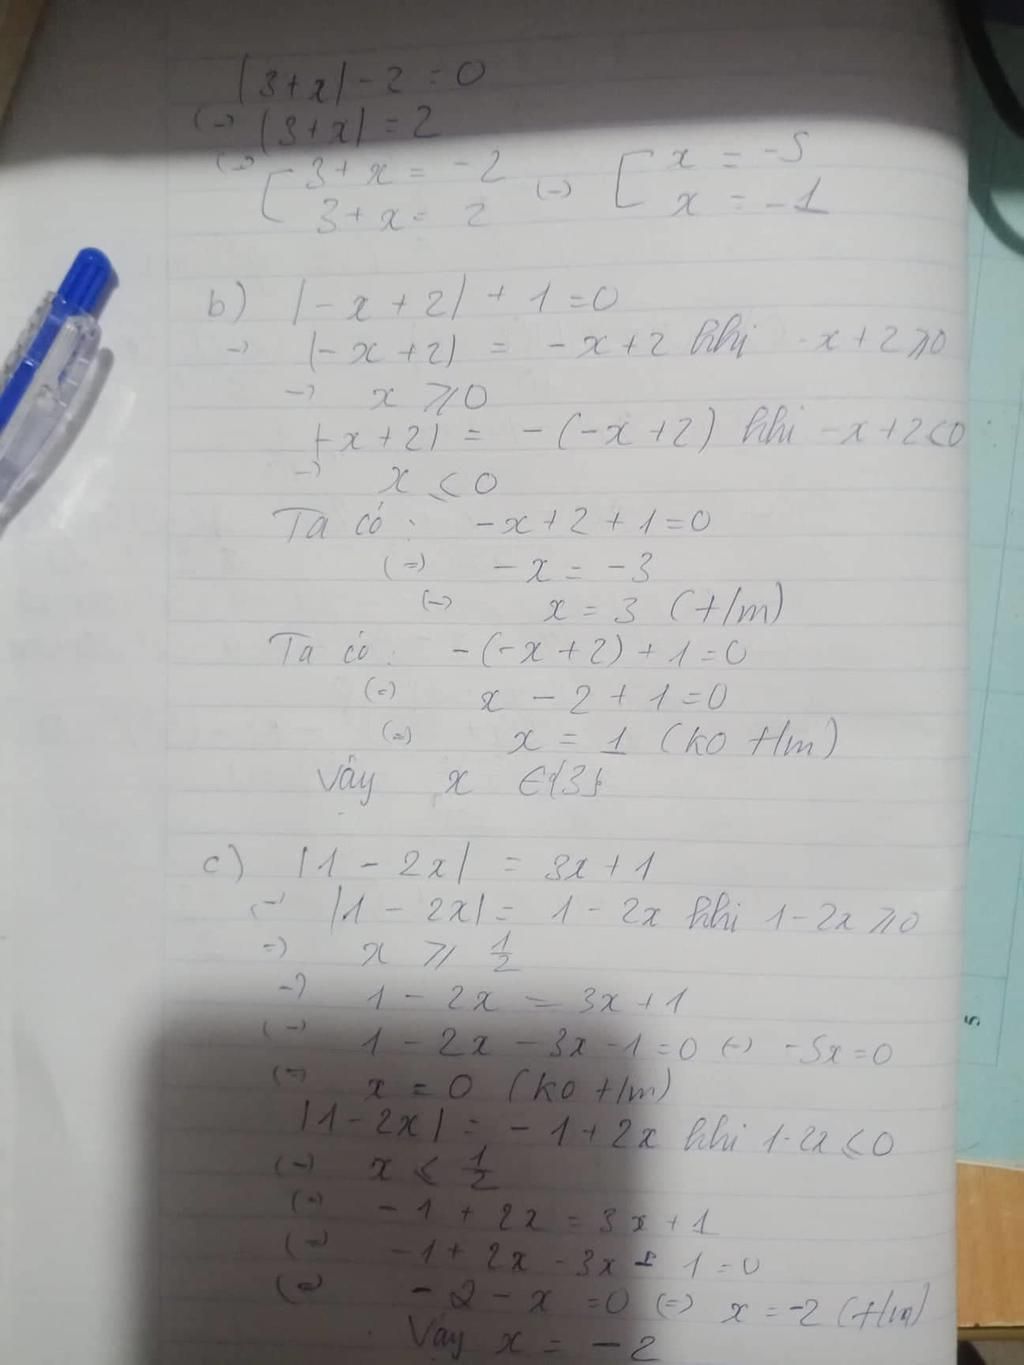 |3+x| - 2 = 0
(=) |3+x| = 2
(=) [ 3+x = -2 (=) [ x = -5
3+x = 2 x = -1
b) |-x+2| + 1 = 0
=) |-x+2| = -x+2 khi -x+2 ≥ 0
=) x ≥ 0
|-x+2| = -(-x+2) khi -x+2 < 0
=) x ≤ 0
Ta có: -x+2+1=0
(=) -x = -3
(=) x = 3 (t/m)
Ta có: -(-x+2)+1=0
(=) x - 2 + 1 = 0
(=) x = 1 (ko t/m)
Vây x ∈ {3}
c) |1 - 2x| = 3x+1
(=) |1 - 2x| = 1 - 2x khi 1-2x ≥ 0
=) x ≥ 1/2
=) 1 - 2x = 3x+1
(=) 1 - 2x - 3x - 1 = 0 (=) -5x = 0
(=) x = 0 (ko t/m)
|1-2x| = -1+2x khi 1-2x ≤ 0
(=) x ≤ 1/2
(=) -1 + 2x = 3x+1
(=) -1 + 2x - 3x - 1 = 0
(=) -2 - x = 0 (=) x = -2 (t/m)
Vây x = -2
5